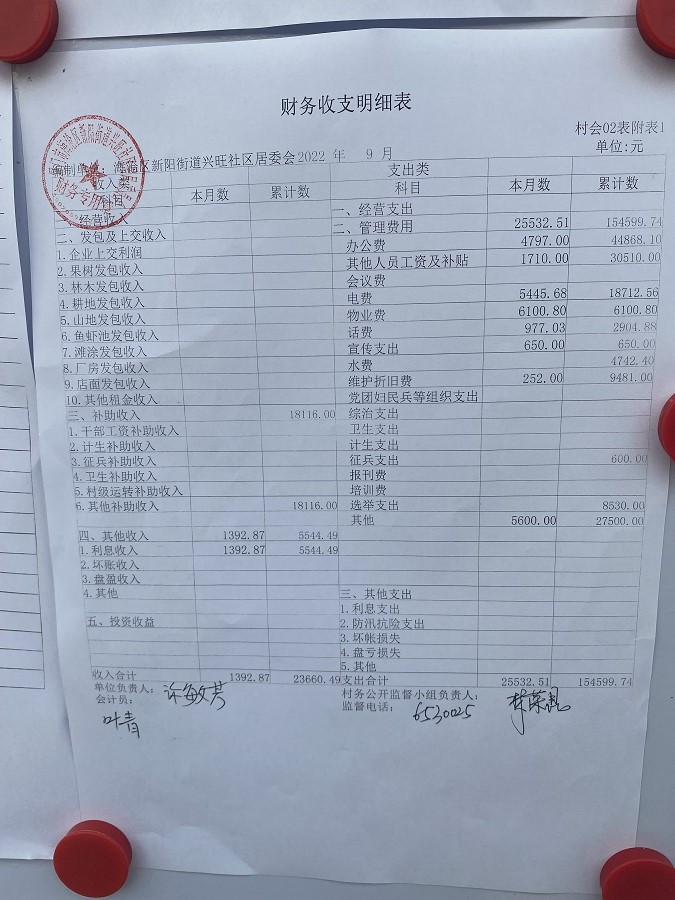 财务收支明细表
村会02表附表1
编制单位：海沧区新阳街道兴旺社区居委会2022 年 9 月 单位：元
收入类 支出类
科目 本月数 累计数 科目 本月数 累计数
一、经营收入 一、经营支出
二、发包及上交收入 二、管理费用 25532.51 154599.74
1.企业上交利润 办公费 4797.00 44868.10
2.果树发包收入 其他人员工资及补贴 1710.00 30510.00
3.林木发包收入 会议费
4.耕地发包收入 电费 5445.68 18712.56
5.山地发包收入 物业费 6100.80 6100.80
6.鱼虾池发包收入 话费 977.03 2904.88
7.滩涂发包收入 宣传支出 650.00 650.00
8.厂房发包收入 水费 4742.40
9.店面发包收入 维护折旧费 252.00 9481.00
10.其他租金收入 党团妇民兵等组织支出
三、补助收入 18116.00 综治支出
1.干部工资补助收入 卫生支出
2.计生补助收入 计生支出
3.征兵补助收入 征兵支出 600.00
4.卫生补助收入 报刊费
5.村级运转补助收入 培训费
6.其他补助收入 18116.00 选举支出 8530.00
其他 5600.00 27500.00
四、其他收入 1392.87 5544.49
1.利息收入 1392.87 5544.49
2.坏账收入
3.盘盈收入
4.其他 三、其他支出
1.利息支出
五、投资收益 2.防汛抗险支出
3.坏帐损失
4.盘亏损失
5.其他
收入合计 1392.87 23660.49 支出合计 25532.51 154599.74
单位负责人： 许敏芳 村务公开监督小组负责人：
会计员： 监督电话： 6530025
叶青
财务专用章